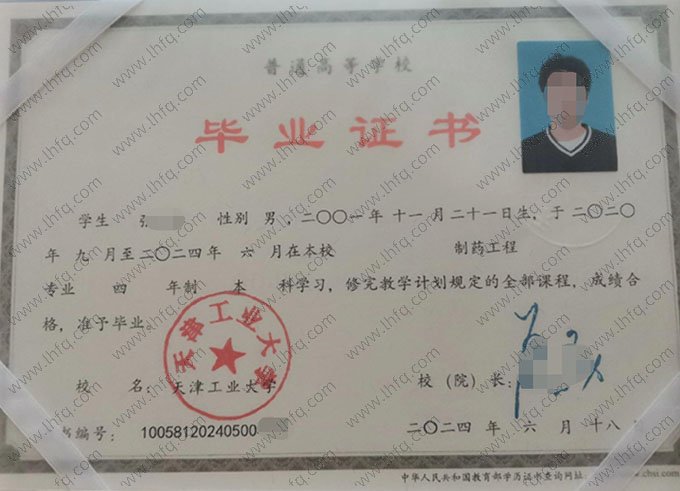 普通高等学校
毕业证书
学生 张 性别 男，二〇〇一年 十一 月 二十一日生，于 二〇二〇
年 九 月至二〇二四年 六 月在本校 制药工程
专业 四 年制 本 科学习，修完教学计划规定的全部课程，成绩合
格，准予毕业。
天津工业大学
校 名：天津工业大学 校（院）长：
书编号：10058120240500
二〇二四 年 六 月 十八
中华人民共和国教育部学历证书查询网址：
www.lhfq.com